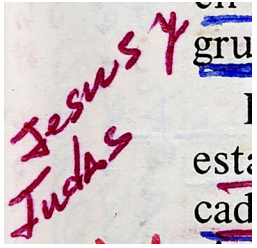 Jesus y
Judas
en
gru
esta
cad